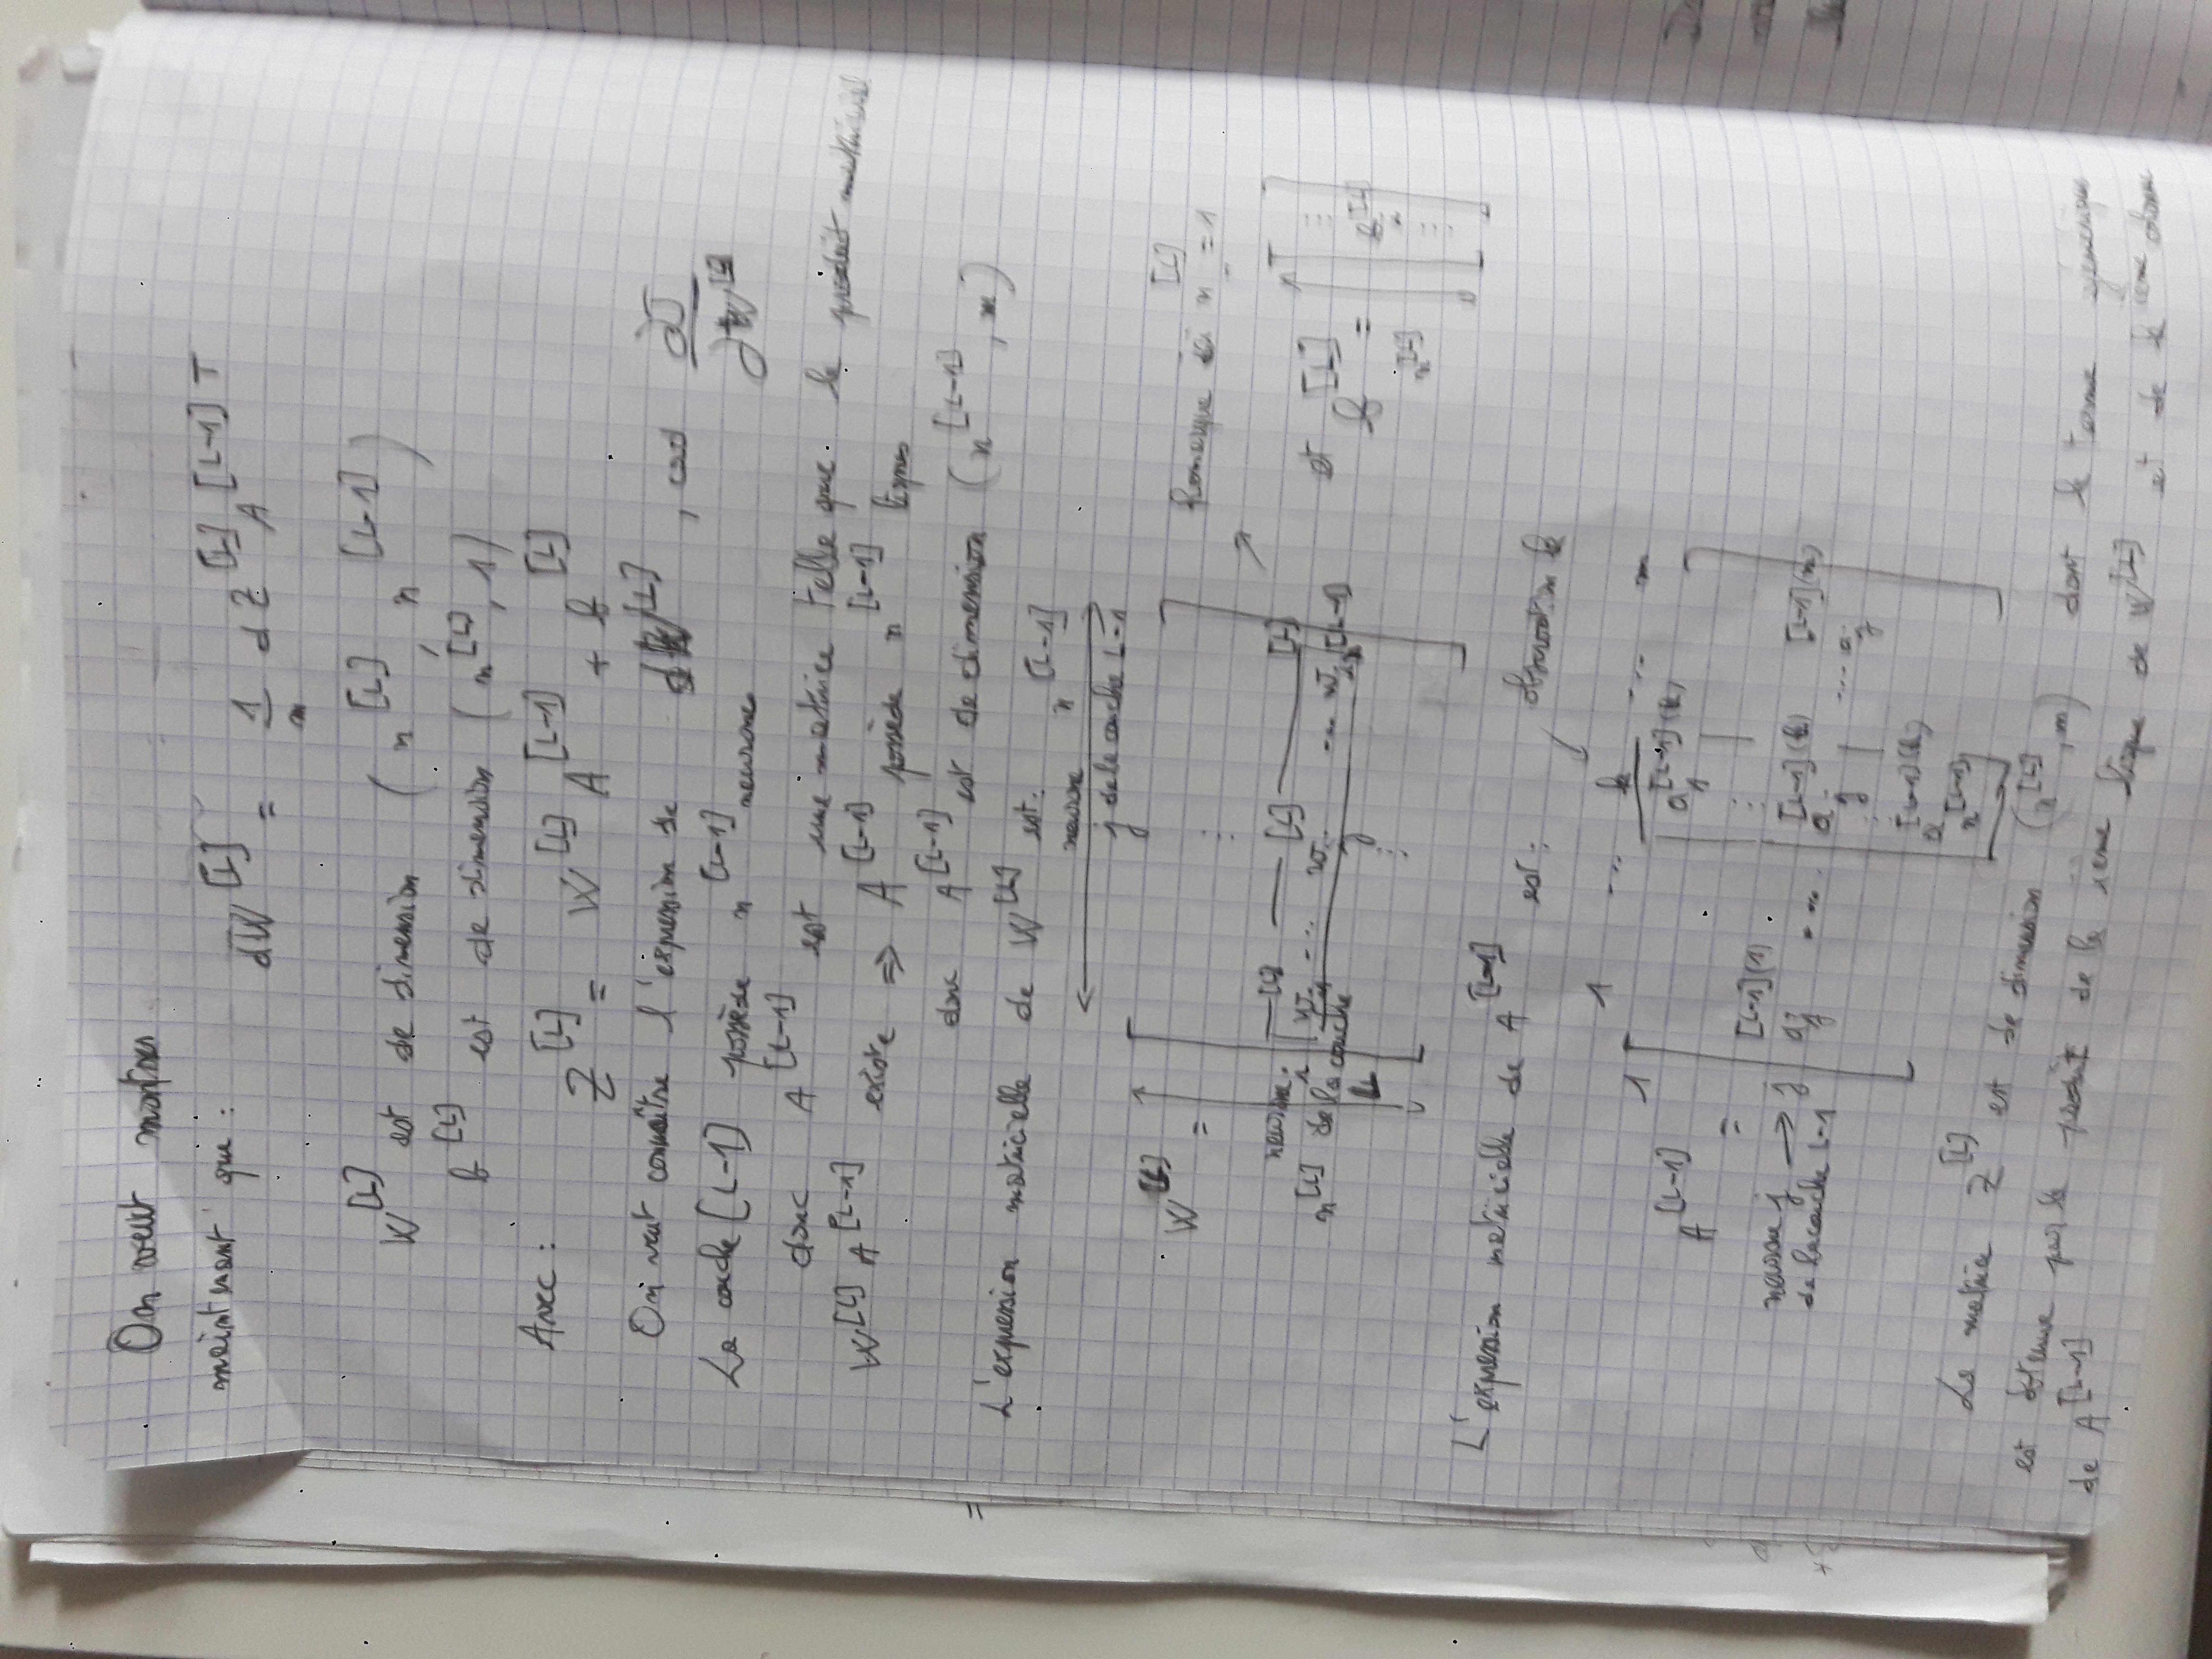 On veut montrer
maintenant que : dW^[L] = 1/m dZ^[L] A^[L-1] T
W^[L] est de dimension (n^[L], n^[L-1])
b^[L] est de dimension (n^[L], 1)
Avec :
Z^[L] = W^[L] A^[L-1] + b^[L]
On veut connaître l'expression de dW^[L], cad ∂J/∂W^[L]
La couche [L-1] possède n^[L-1] neurones
donc A^[L-1] est une matrice telle que le produit matriciel
W^[L] A^[L-1] existe ⇒ A^[L-1] possède n^[L-1] lignes
donc A^[L-1] est de dimension (n^[L-1], m)
L'expression matricielle de W^[L] est :
n^[L-1]
neurone
j de la couche L-1
W^[L] =
neurone i
n^[L] de la couche
L
w_i1^[L] ... w_ij^[L] ... w_in^[L-1]^[L]
Remarque ici n^[L] = 1
et b^[L] =
n^[L]
b_i^[L]
L'expression matricielle de A^[L-1] est :
observation k
1 ... k ... m
1
A^[L-1] =
a_1^[L-1](k)
neurone j → j
de la couche L-1
a_j^[L-1](1) ... a_j^[L-1](k) ... a_j^[L-1](m)
a_n^[L-1]^[L-1](k)
La matrice Z^[L] est de dimension (n^[L], m) dont le terme générique
est obtenue par le produit de la ième ligne de W^[L] et de la k ième colonne
de A^[L-1]